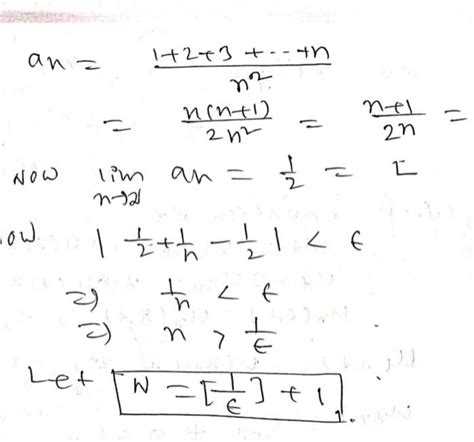 an = (1+2+3+---+n)/n²
= n(n+1)/2n² = (n+1)/2n =
Now lim n→∞ an = 1/2 = L
ow | 1/2 + 1/n - 1/2 | < ε
⇒) 1/n < ε
⇒) n > 1/ε
Let N = [1/ε] + 1